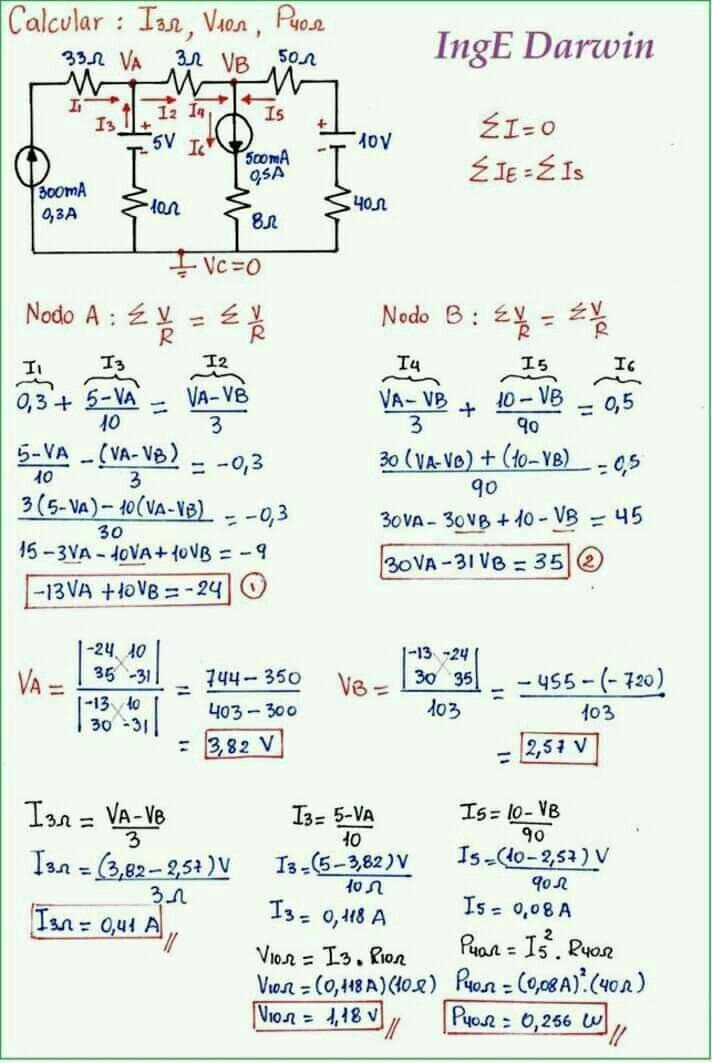 Calcular : I3Ω, V10Ω, P40Ω
IngE Darwin
33Ω VA 3Ω VB 50Ω
I1 I2 I4 I5
I3 + 5V -
I6
500mA
0,5A
+ 10V -
300mA
0,3A
10Ω
8Ω
40Ω
VC=0
ΣI=0
ΣIE=ΣIS
Nodo A : Σ V/R = Σ V/R
I1 I3 I2
0,3 + (5-VA)/10 = (VA-VB)/3
(5-VA)/10 - (VA-VB)/3 = -0,3
(3(5-VA)-10(VA-VB))/30 = -0,3
15-3VA-10VA+10VB = -9
-13VA+10VB=-24 1
Nodo B : Σ V/R = Σ V/R
I4 I5 I6
(VA-VB)/3 + (10-VB)/90 = 0,5
(30(VA-VB)+(10-VB))/90 = 0,5
30VA-30VB+10-VB = 45
30VA-31VB=35 2
VA = |-24 10 35 -31| / |-13 10 30 -31| = (744-350)/(403-300)
= 3,82 V
VB = |-13 -24 30 35| / 103 = (-455-(-720))/103
= 2,57 V
I3Ω = (VA-VB)/3
I3Ω = (3,82-2,57)V/3Ω
I3Ω = 0,41 A //
I3 = (5-VA)/10
I3 = (5-3,82)V/10Ω
I3 = 0,118 A
V10Ω = I3 . R10Ω
V10Ω = (0,118A)(10Ω)
V10Ω = 1,18 V //
I5 = (10-VB)/90
I5 = (10-2,57)V/90Ω
I5 = 0,08A
P40Ω = I5². R40Ω
P40Ω = (0,08A)².(40Ω)
P40Ω = 0,256 W //